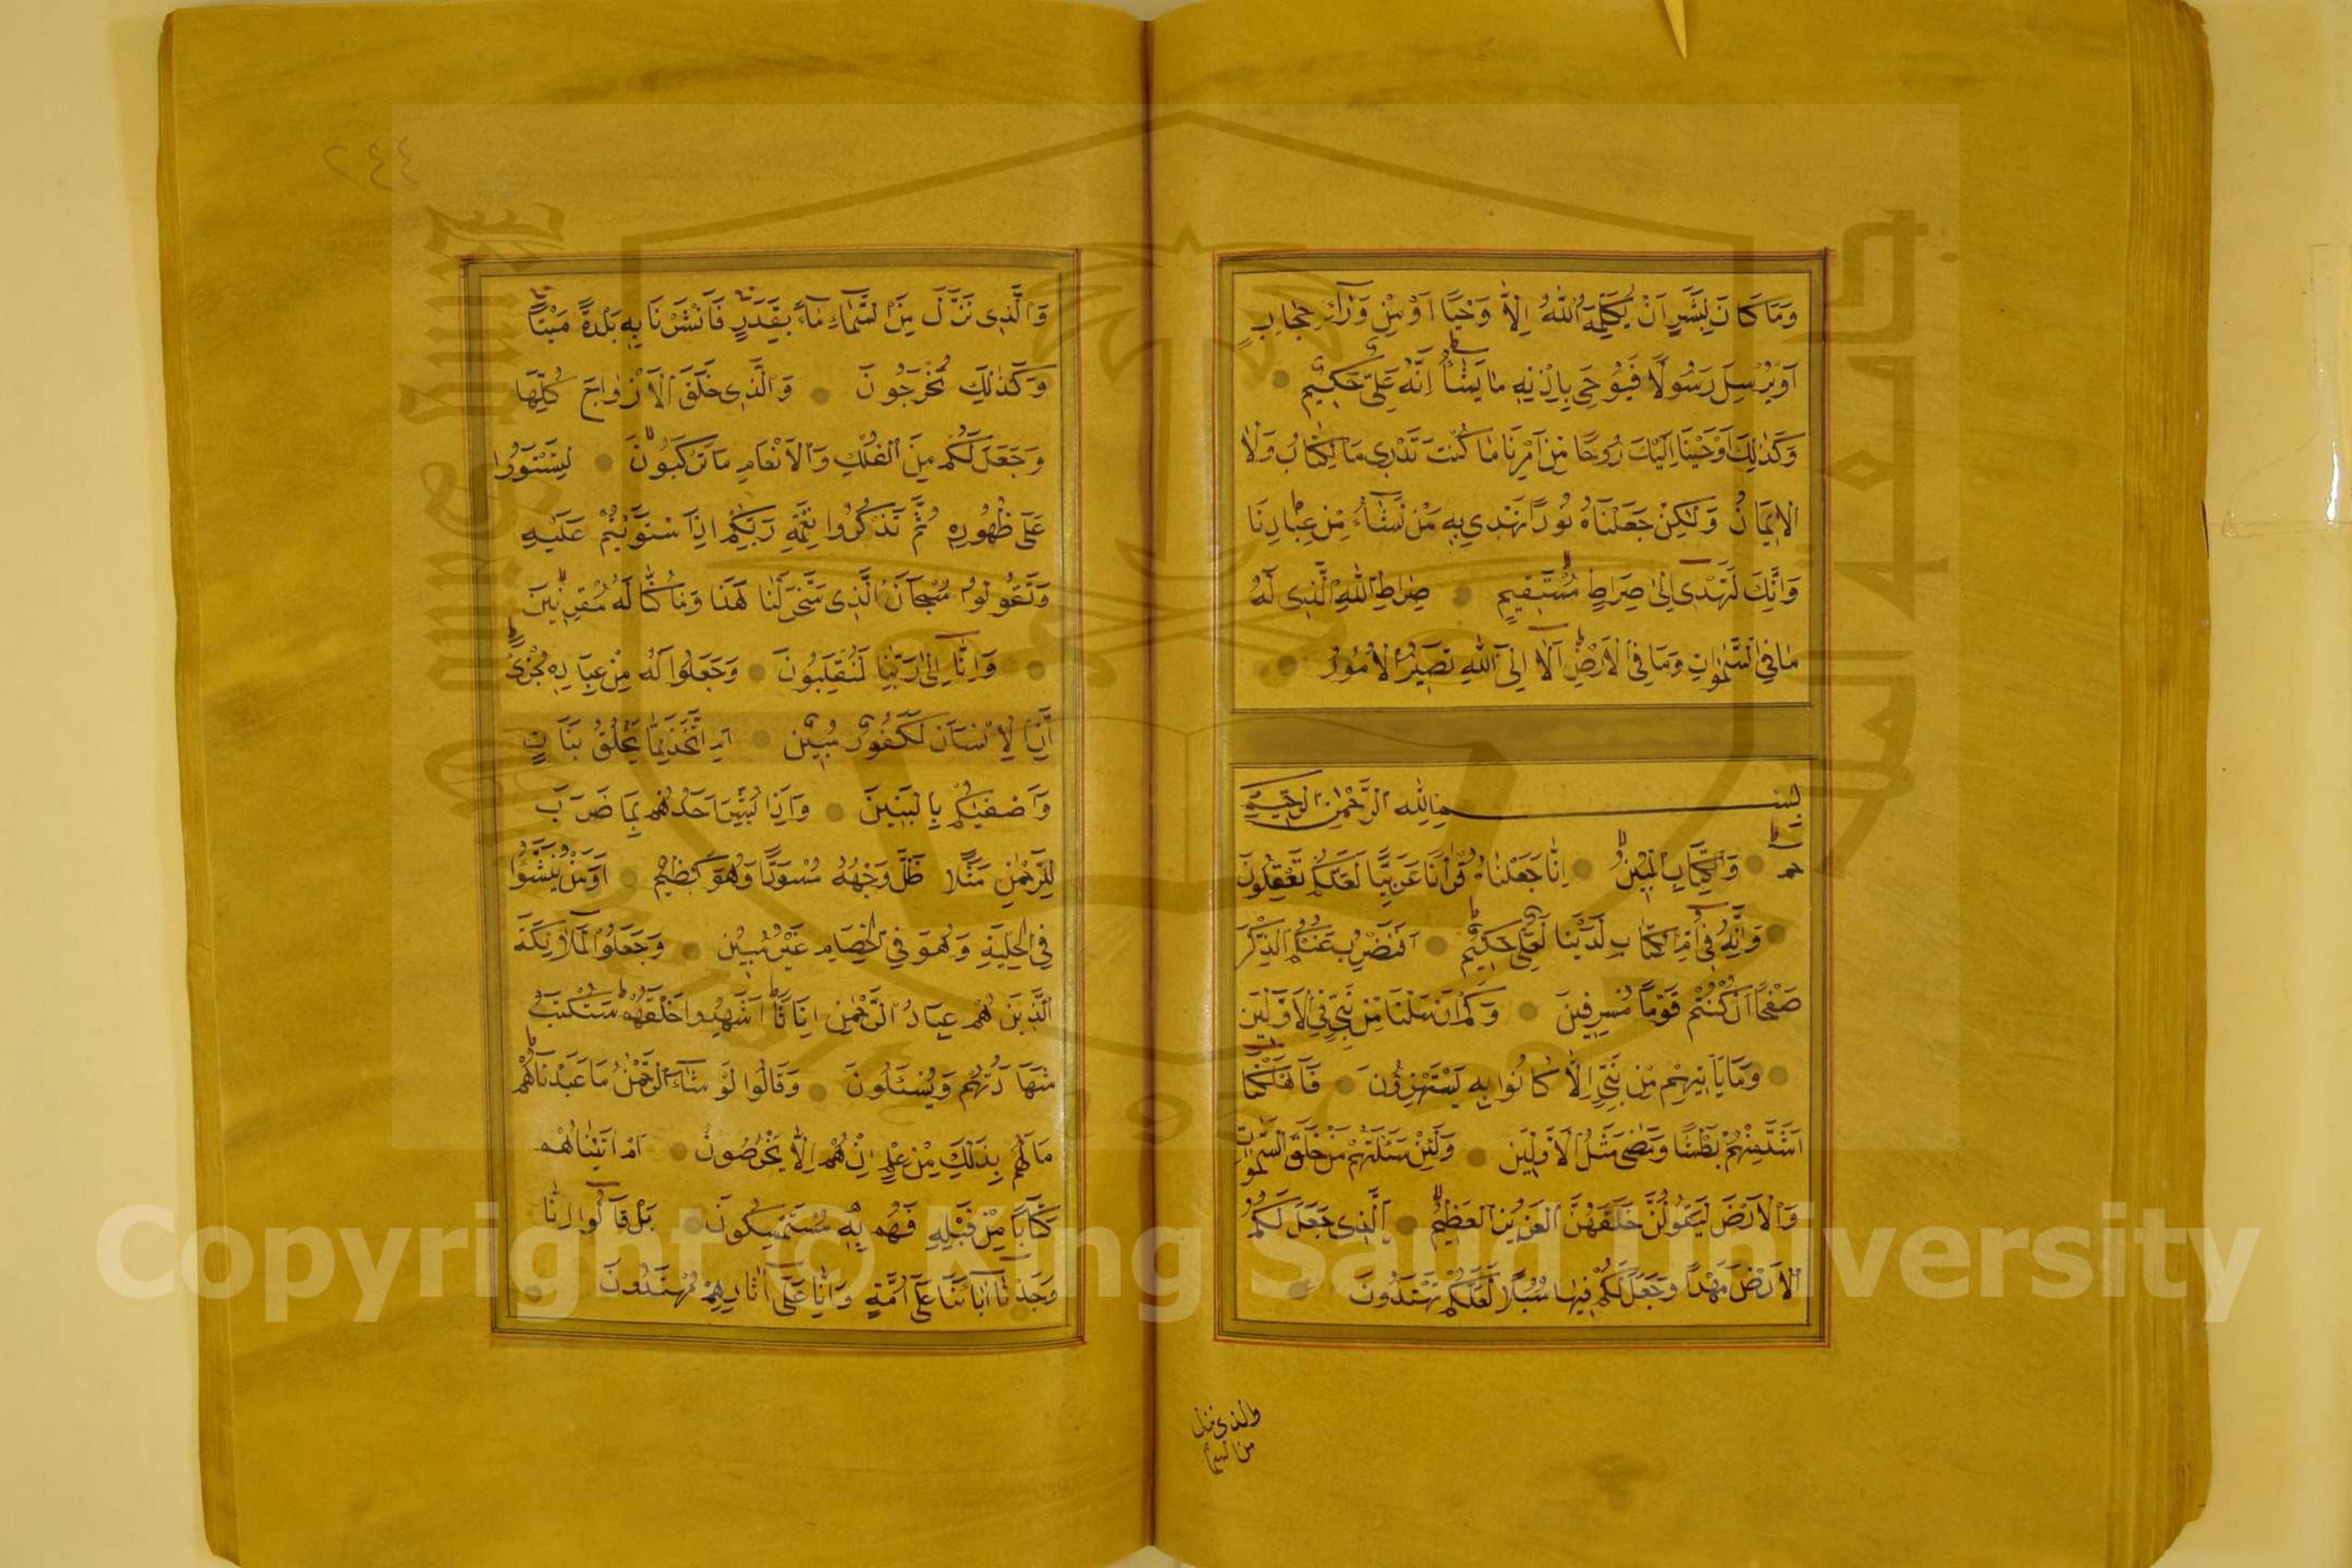 وَمَا كَانَ لِبَشَرٍ اَنْ يُكَلِّمَهُ اللّٰهُ اِلَّا وَحْيًا اَوْ مِنْ وَرَآئِ حِجَابٍ
اَوْ يُرْسِلَ رَسُولًا فَيُوحِىَ بِاِذْنِهِ مَا يَشَآءُ اِنَّهُ عَلِىٌّ حَكِيمٌ
وَكَذٰلِكَ اَوْحَيْنَا اِلَيْكَ رُوحًا مِنْ اَمْرِنَا مَا كُنْتَ تَدْرِى مَا الْكِتَابُ وَلَا
الْاِيمَانُ وَلٰكِنْ جَعَلْنَاهُ نُورًا نَهْدِى بِهِ مَنْ نَشَآءُ مِنْ عِبَادِنَا
وَاِنَّكَ لَتَهْدِىٓ اِلٰى صِرَاطٍ مُسْتَقِيمٍ صِرَاطِ اللّٰهِ الَّذِى لَهُ
مَا فِى السَّمٰوَاتِ وَمَا فِى الْاَرْضِ اَلَآ اِلَى اللّٰهِ تَصِيرُ الْاُمُورُ
بِسْمِ اللّٰهِ الرَّحْمٰنِ الرَّحِيمِ
حم وَالْكِتَابِ الْمُبِينِ اِنَّا جَعَلْنَاهُ قُرْاٰنًا عَرَبِيًّا لَعَلَّكُمْ تَعْقِلُونَ
وَاِنَّهُ فِىٓ اُمِّ الْكِتَابِ لَدَيْنَا لَعَلِىٌّ حَكِيمٌ اَفَنَضْرِبُ عَنْكُمُ الذِّكْرَ
صَفْحًا اَنْ كُنْتُمْ قَوْمًا مُسْرِفِينَ وَكَمْ اَرْسَلْنَا مِنْ نَبِىٍّ فِى الْاَوَّلِينَ
وَمَا يَاْتِيهِمْ مِنْ نَبِىٍّ اِلَّا كَانُوا بِهِ يَسْتَهْزِؤُنَ فَاَهْلَكْنَآ
اَشَدَّ مِنْهُمْ بَطْشًا وَمَضٰى مَثَلُ الْاَوَّلِينَ وَلَئِنْ سَئَلْتَهُمْ مَنْ خَلَقَ السَّمٰوَاتِ
وَالْاَرْضَ لَيَقُولُنَّ خَلَقَهُنَّ الْعَزِيزُ الْعَلِيمُ اَلَّذِى جَعَلَ لَكُمُ
الْاَرْضَ مَهْدًا وَجَعَلَ لَكُمْ فِيهَا سُبُلًا لَعَلَّكُمْ تَهْتَدُونَ
والذى نزل
من السمآ
٤٤٢
وَالَّذِى نَزَّلَ مِنَ السَّمَآءِ مَآءً بِقَدَرٍ فَاَنْشَرْنَا بِهِ بَلْدَةً مَيْتًا
وَكَذٰلِكَ تُخْرَجُونَ وَالَّذِى خَلَقَ الْاَزْوَاجَ كُلَّهَا
وَجَعَلَ لَكُمْ مِنَ الْفُلْكِ وَالْاَنْعَامِ مَا تَرْكَبُونَ لِتَسْتَوُوا
عَلٰى ظُهُورِهِ ثُمَّ تَذْكُرُوا نِعْمَةَ رَبِّكُمْ اِذَا اسْتَوَيْتُمْ عَلَيْهِ
وَتَقُولُوا سُبْحَانَ الَّذِى سَخَّرَ لَنَا هٰذَا وَمَا كُنَّا لَهُ مُقْرِنِينَ
وَاِنَّآ اِلٰى رَبِّنَا لَمُنْقَلِبُونَ وَجَعَلُوا لَهُ مِنْ عِبَادِهِ جُزْءًا
اِنَّ الْاِنْسَانَ لَكَفُورٌ مُبِينٌ اَمِ اتَّخَذَ مِمَّا يَخْلُقُ بَنَاتٍ
وَاَصْفٰيكُمْ بِالْبَنِينَ وَاِذَا بُشِّرَ اَحَدُهُمْ بِمَا ضَرَبَ
لِلرَّحْمٰنِ مَثَلًا ظَلَّ وَجْهُهُ مُسْوَدًّا وَهُوَ كَظِيمٌ اَوَمَنْ يُنَشَّؤُا
فِى الْحِلْيَةِ وَهُوَ فِى الْخِصَامِ غَيْرُ مُبِينٍ وَجَعَلُوا الْمَلٰٓئِكَةَ
الَّذِينَ هُمْ عِبَادُ الرَّحْمٰنِ اِنَاثًا اَشَهِدُوا خَلْقَهُمْ سَتُكْتَبُ
شَهَادَتُهُمْ وَيُسْئَلُونَ وَقَالُوا لَوْ شَآءَ الرَّحْمٰنُ مَا عَبَدْنَاهُمْ
مَا لَهُمْ بِذٰلِكَ مِنْ عِلْمٍ اِنْ هُمْ اِلَّا يَخْرُصُونَ اَمْ اٰتَيْنَاهُمْ
كِتَابًا مِنْ قَبْلِهِ فَهُمْ بِهِ مُسْتَمْسِكُونَ بَلْ قَالُوٓا اِنَّا
وَجَدْنَآ اٰبَآءَنَا عَلٰٓى اُمَّةٍ وَاِنَّا عَلٰٓى اٰثَارِهِمْ مُهْتَدُونَ
Copyright © King Saud University
King Saud University
جامعة الملك سعود
1957